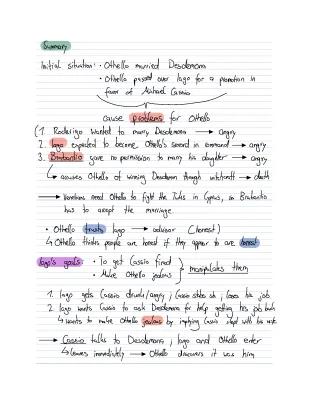 Summary
Initial situation: • Othello married Desdemona
• Othello passed over Iago for a promotion in
favor of Michael Cassio
cause problems for Othello
(1. Roderigo wanted to marry Desdemona → angry
2. Iago expected to become Othello's second in command → angry
3. Brabantio gave no permission to marry his daughter → angry
↳ accuses Othello of winning Desdemona through witchcraft → death
→ Venetians need Othello to fight the Turks in Cyprus, so Brabantio
has to accept the marriage
• Othello trusts Iago → advisor (honest)
↳ Othello thinks people are honest if they appear to be honest
Iago's goals: • To get Cassio fired
• Make Othello jealous } manipulates them
1. Iago gets Cassio drunk/angry, Cassio stabs sb., loses his job
2. Iago wants Cassio to ask Desdemona for help getting his job back
↳ wants to make Othello jealous by implying Cassio slept with his wife
→ Cassio talks to Desdemona, Iago and Othello enter
↳ leaves immediately → Othello discovers it was him